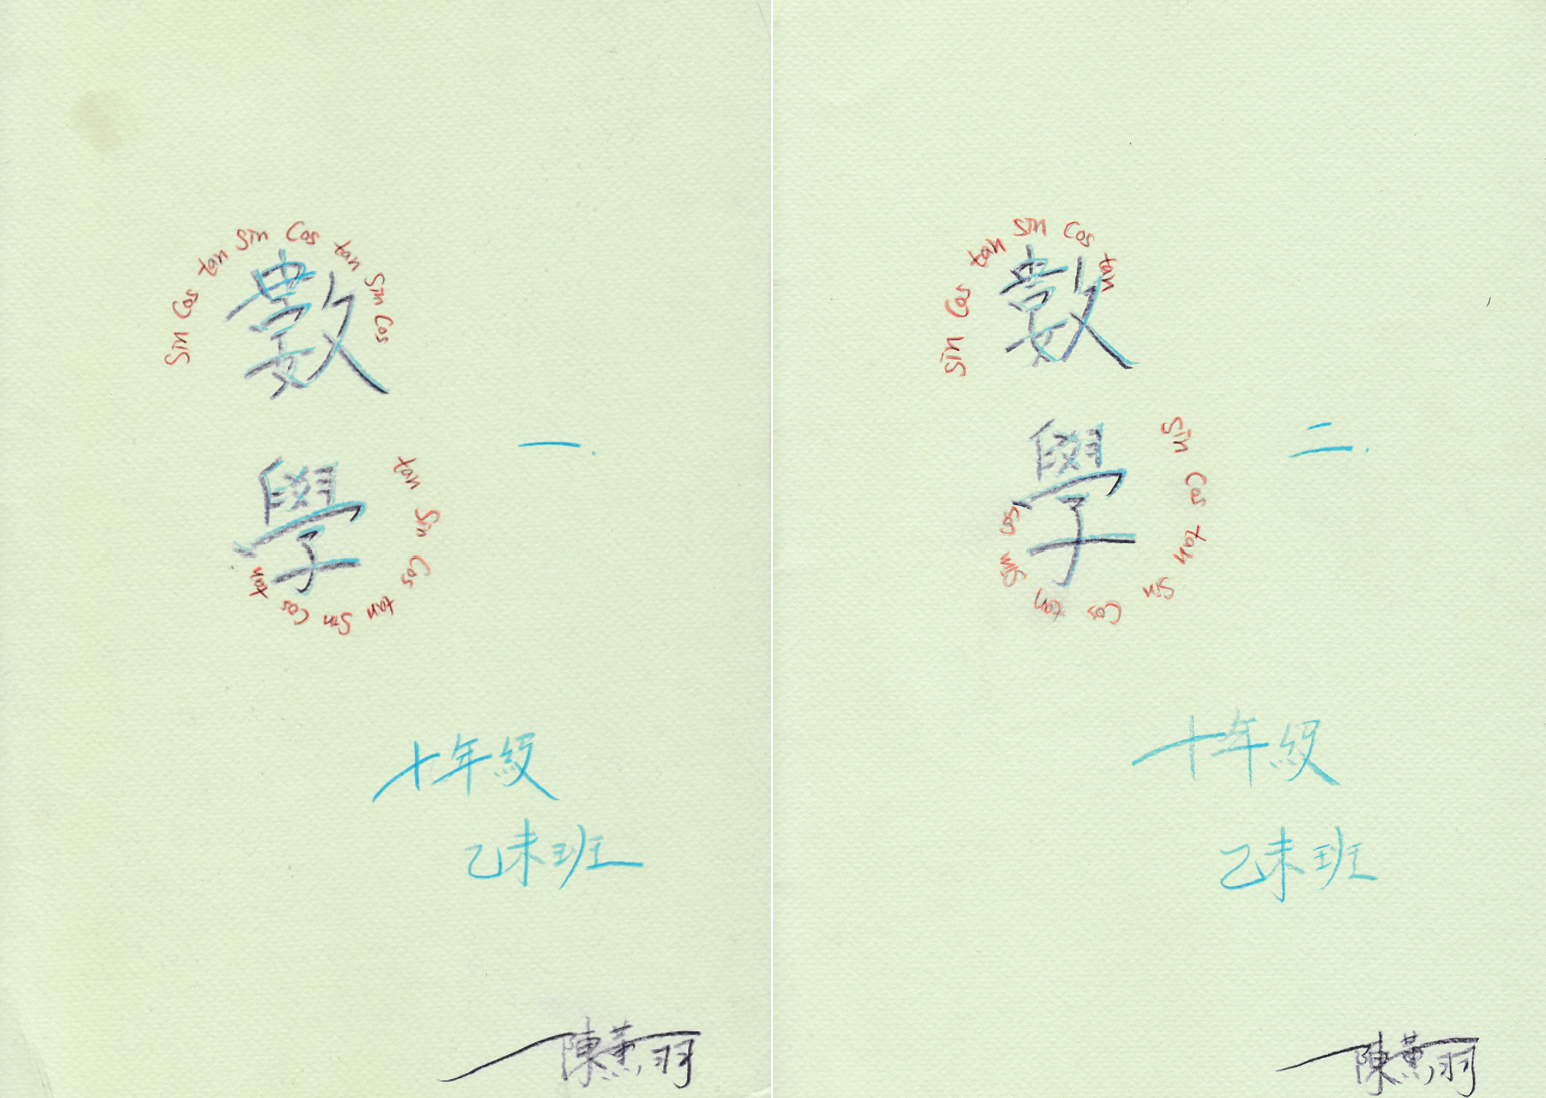 sin cos tan sin cos tan sin cos
數
學
tan sin cos tan sin cos tan
一.
十年級
乙未班
陳薫羽
sin cos tan sin cos tan
數
學
sin cos tan sin cos tan sin cos
二.
十年級
乙未班
陳薫羽